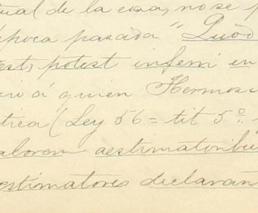 tual de la cosa, no se p
época pasada "Quod
est, potest inferri in
ero á quien Hermos
trea (Ley 56 = tit 5º
alorem aestimatoribu
estimatores declaran